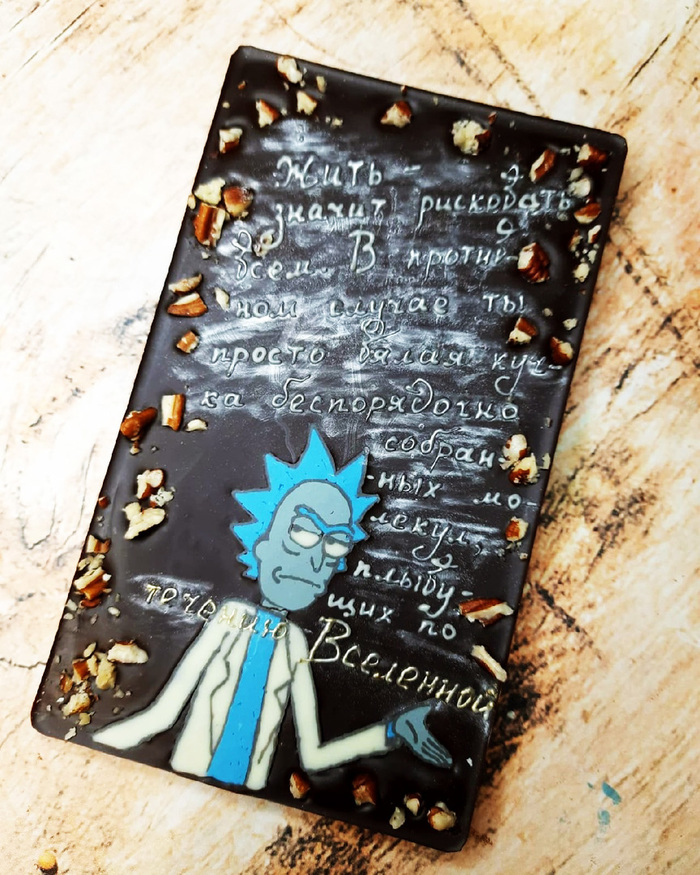 Жить -
значит рисковать
всем. В против-
ном случае ты
просто вялая куч-
ка беспорядочно
собран-
ных мо-
лекул,
плыву-
щих по
течению Вселенной